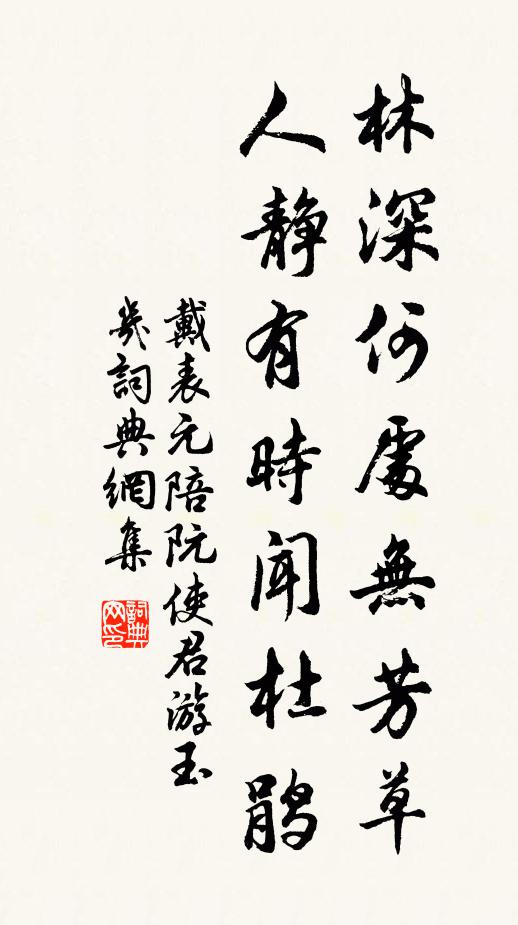 林深何處無芳草
人静有時聞杜鹃
戴表元陪阮使君游玉
幾詞典網集
詞典网印